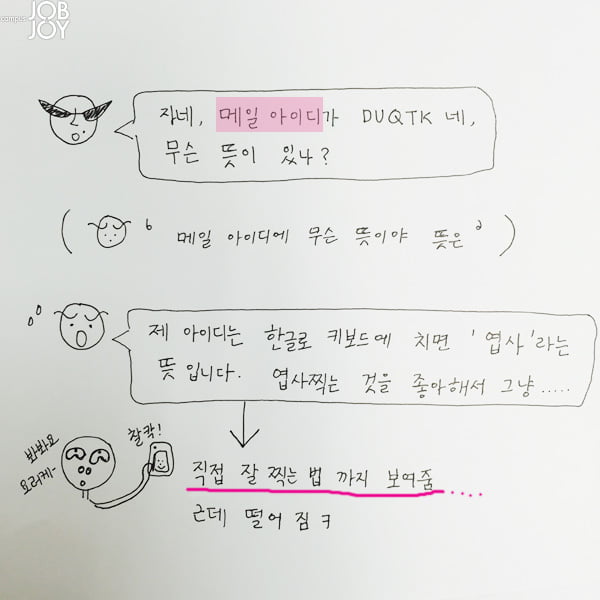 campus JOB
JOY
자네, 메일 아이디가 DUQTK 네,
무슨 뜻이 있나?
( ' 메일 아이디에 무슨 뜻이야 뜻은 ' )
제 아이디는 한글로 키보드에 치면 '엽사'라는
뜻입니다. 엽사찍는 것을 좋아해서 그냥.....
찰칵!
봐봐요
요러케~
직접 잘 찍는 법 까지 보여줌....
근데 떨어 짐 ㅋ